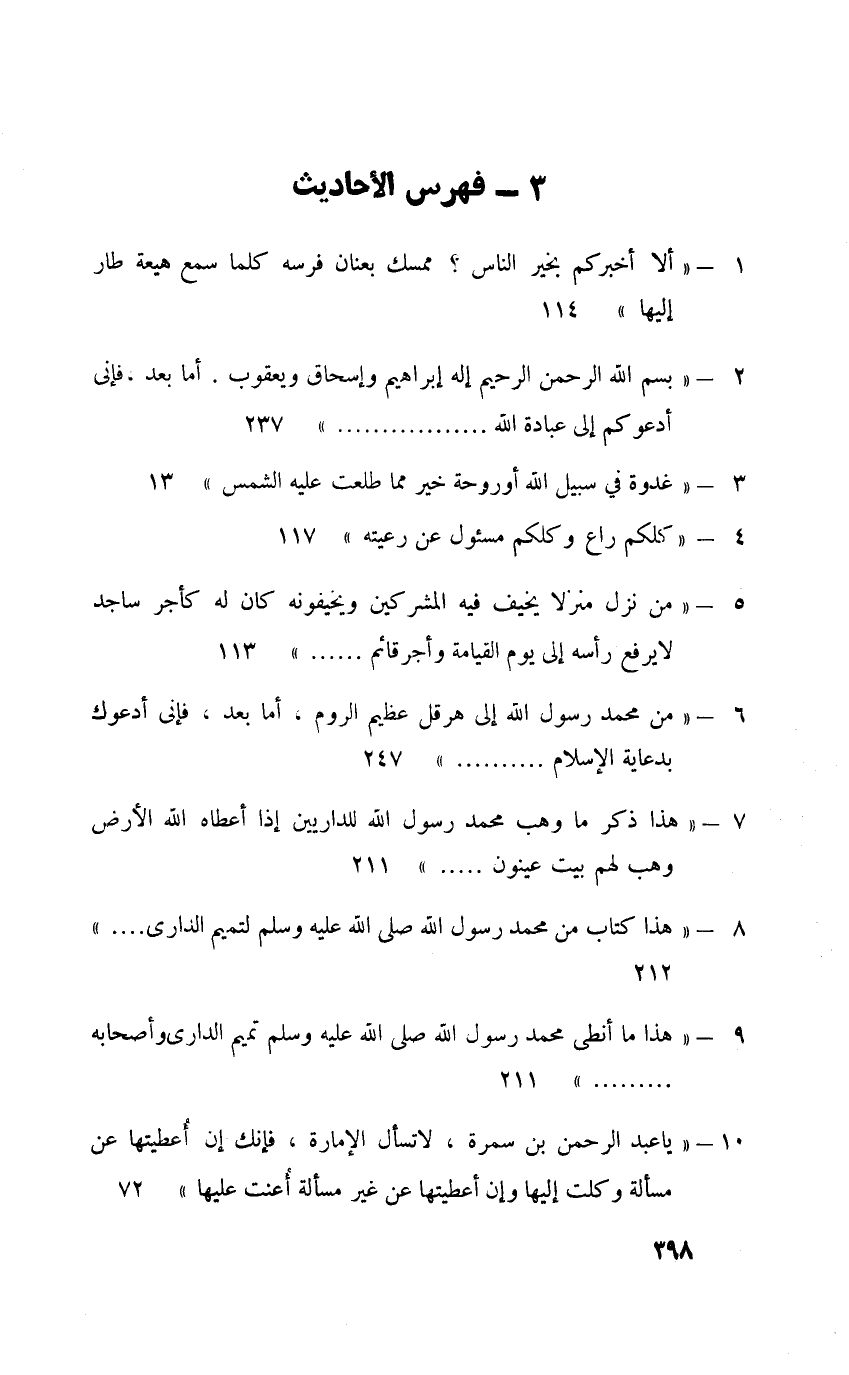 ٣ ـ فهرس الأحاديث
١ ـ « ألا أخبركم بخير الناس ؟ ممسك بعنان فرسه كلما سمع هيعة طار
إليها » ١١٤
٢ ـ « بسم الله الرحمن الرحيم إله إبراهيم وإسحاق ويعقوب . أما بعد ، فإنى
أدعوكم إلى عبادة الله ................. » ٢٣٧
٣ ـ « غدوة في سبيل الله أوروحة خير مما طلعت عليه الشمس » ١٣
٤ ـ « كلكم راع وكلكم مسئول عن رعيته » ١١٧
٥ ـ « من نزل منزلا يخيف فيه المشركين ويخيفونه كان له كأجر ساجد
لايرفع رأسه إلى يوم القيامة وأجرقائم ...... » ١١٣
٦ ـ « من محمد رسول الله إلى هرقل عظيم الروم ، أما بعد ، فإنى أدعوك
بدعاية الإسلام .......... » ٢٤٧
٧ ـ « هذا ذكر ما وهب محمد رسول الله للداريين إذا أعطاه الله الأرض
وهب لهم بيت عينون ..... » ٢١١
٨ ـ « هذا كتاب من محمد رسول الله صلى الله عليه وسلم لتميم الدارى.... »
٢١٢
٩ ـ « هذا ما أنطى محمد رسول الله صلى الله عليه وسلم تميم الدارى وأصحابه
......... » ٢١١
١٠ ـ « ياعبد الرحمن بن سمرة ، لاتسأل الإمارة ، فإنك إن أُعطيتها عن
مسألة وكلت إليها وإن أعطيتها عن غير مسألة أُعنت عليها » ٧٢
٣٩٨